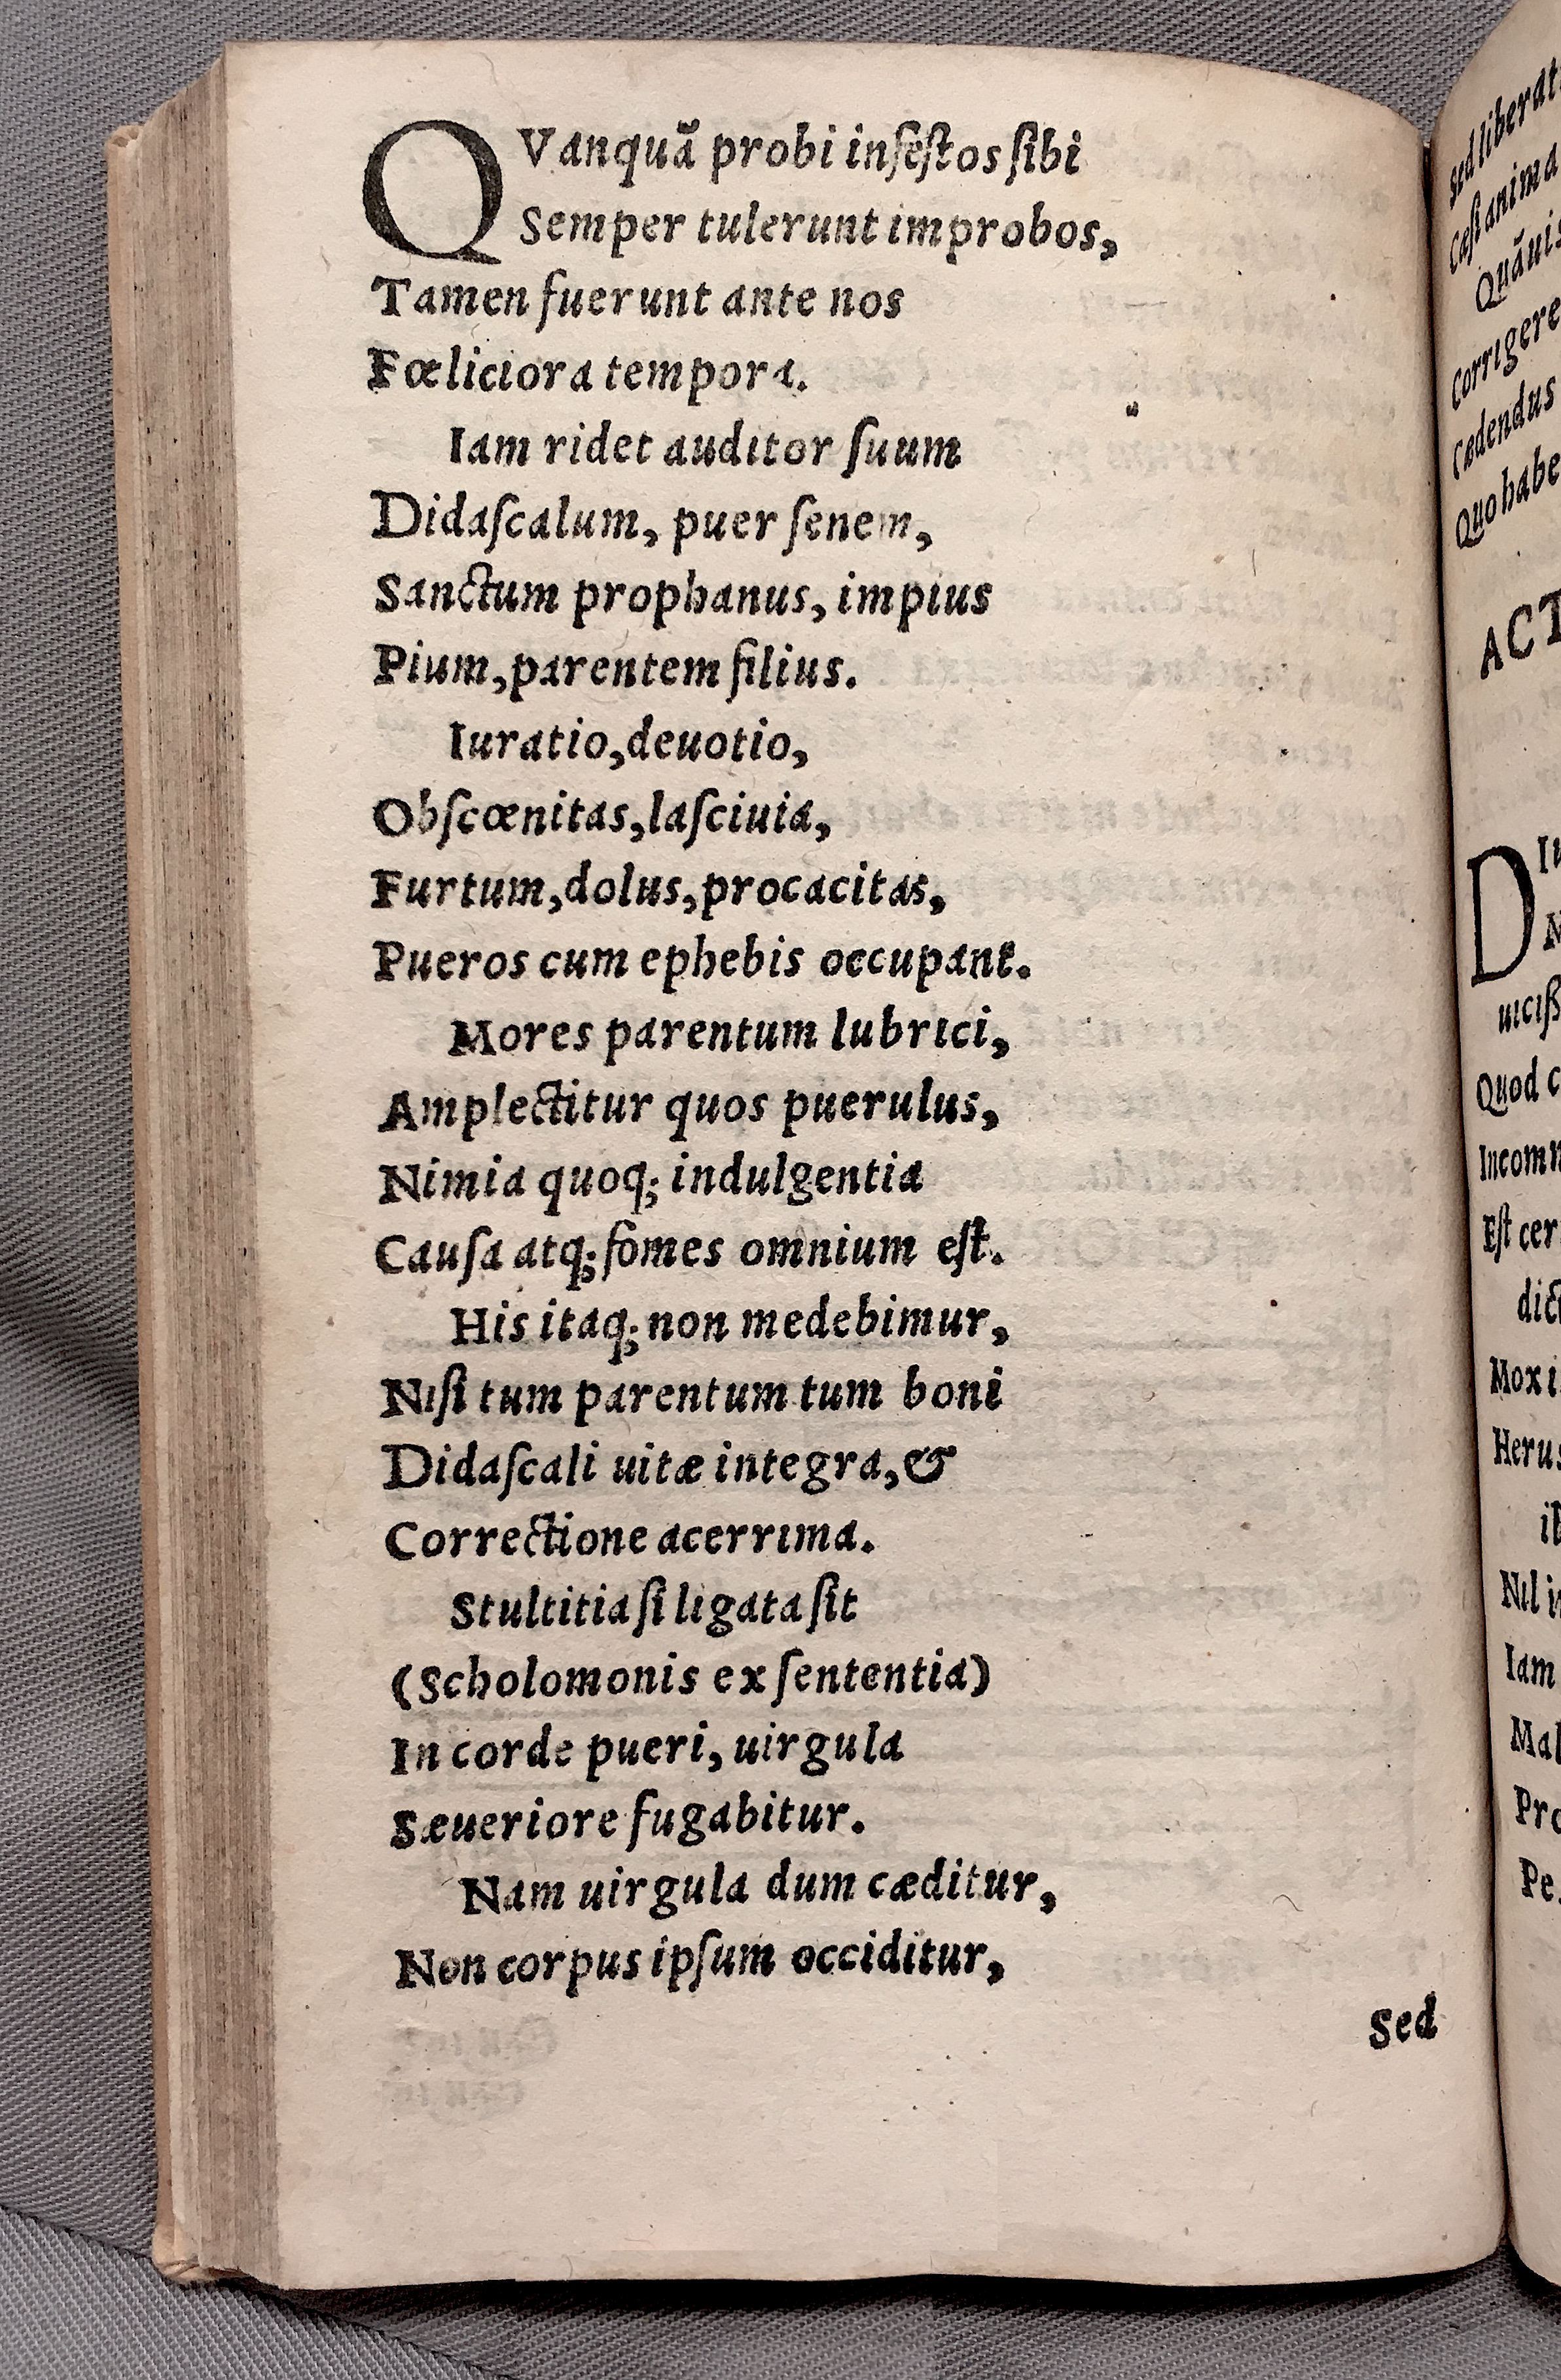 QVanquã probi infestos sibi
Semper tulerunt improbos,
Tamen fuerunt ante nos
Fœliciora tempora.
Iam ridet auditor ſuum
Didaſcalum, puer ſenem,
Sanctum prophanus, impius
Pium, parentem filius.
Iuratio, deuotio,
Obſcœnitas, laſciuia,
Furtum, dolus, procacitas,
Pueros cum ephebis occupant.
Mores parentum lubrici,
Amplectitur quos puerulus,
Nimia quoq; indulgentia
Cauſa atq; fomes omnium eſt.
His itaq; non medebimur,
Niſi tum parentum tum boni
Didaſcali uitæ integra, &
Correctione acerrima.
Stultitia ſi ligata ſit
(Scholomonis ex ſententia)
In corde pueri, uirgula
Sæueriore fugabitur.
Nam uirgula dum cæditur,
Non corpus ipſum occiditur,
Sed
Sed liberat
Cæſt anima
Quãuis
Corrigere
Cædendus
Quo habe
ACT
D
uiciß
Quod c
Incomm
Eſt cer
Mox i
Herus
Nil i
Iam
Mal
Pro
Pe